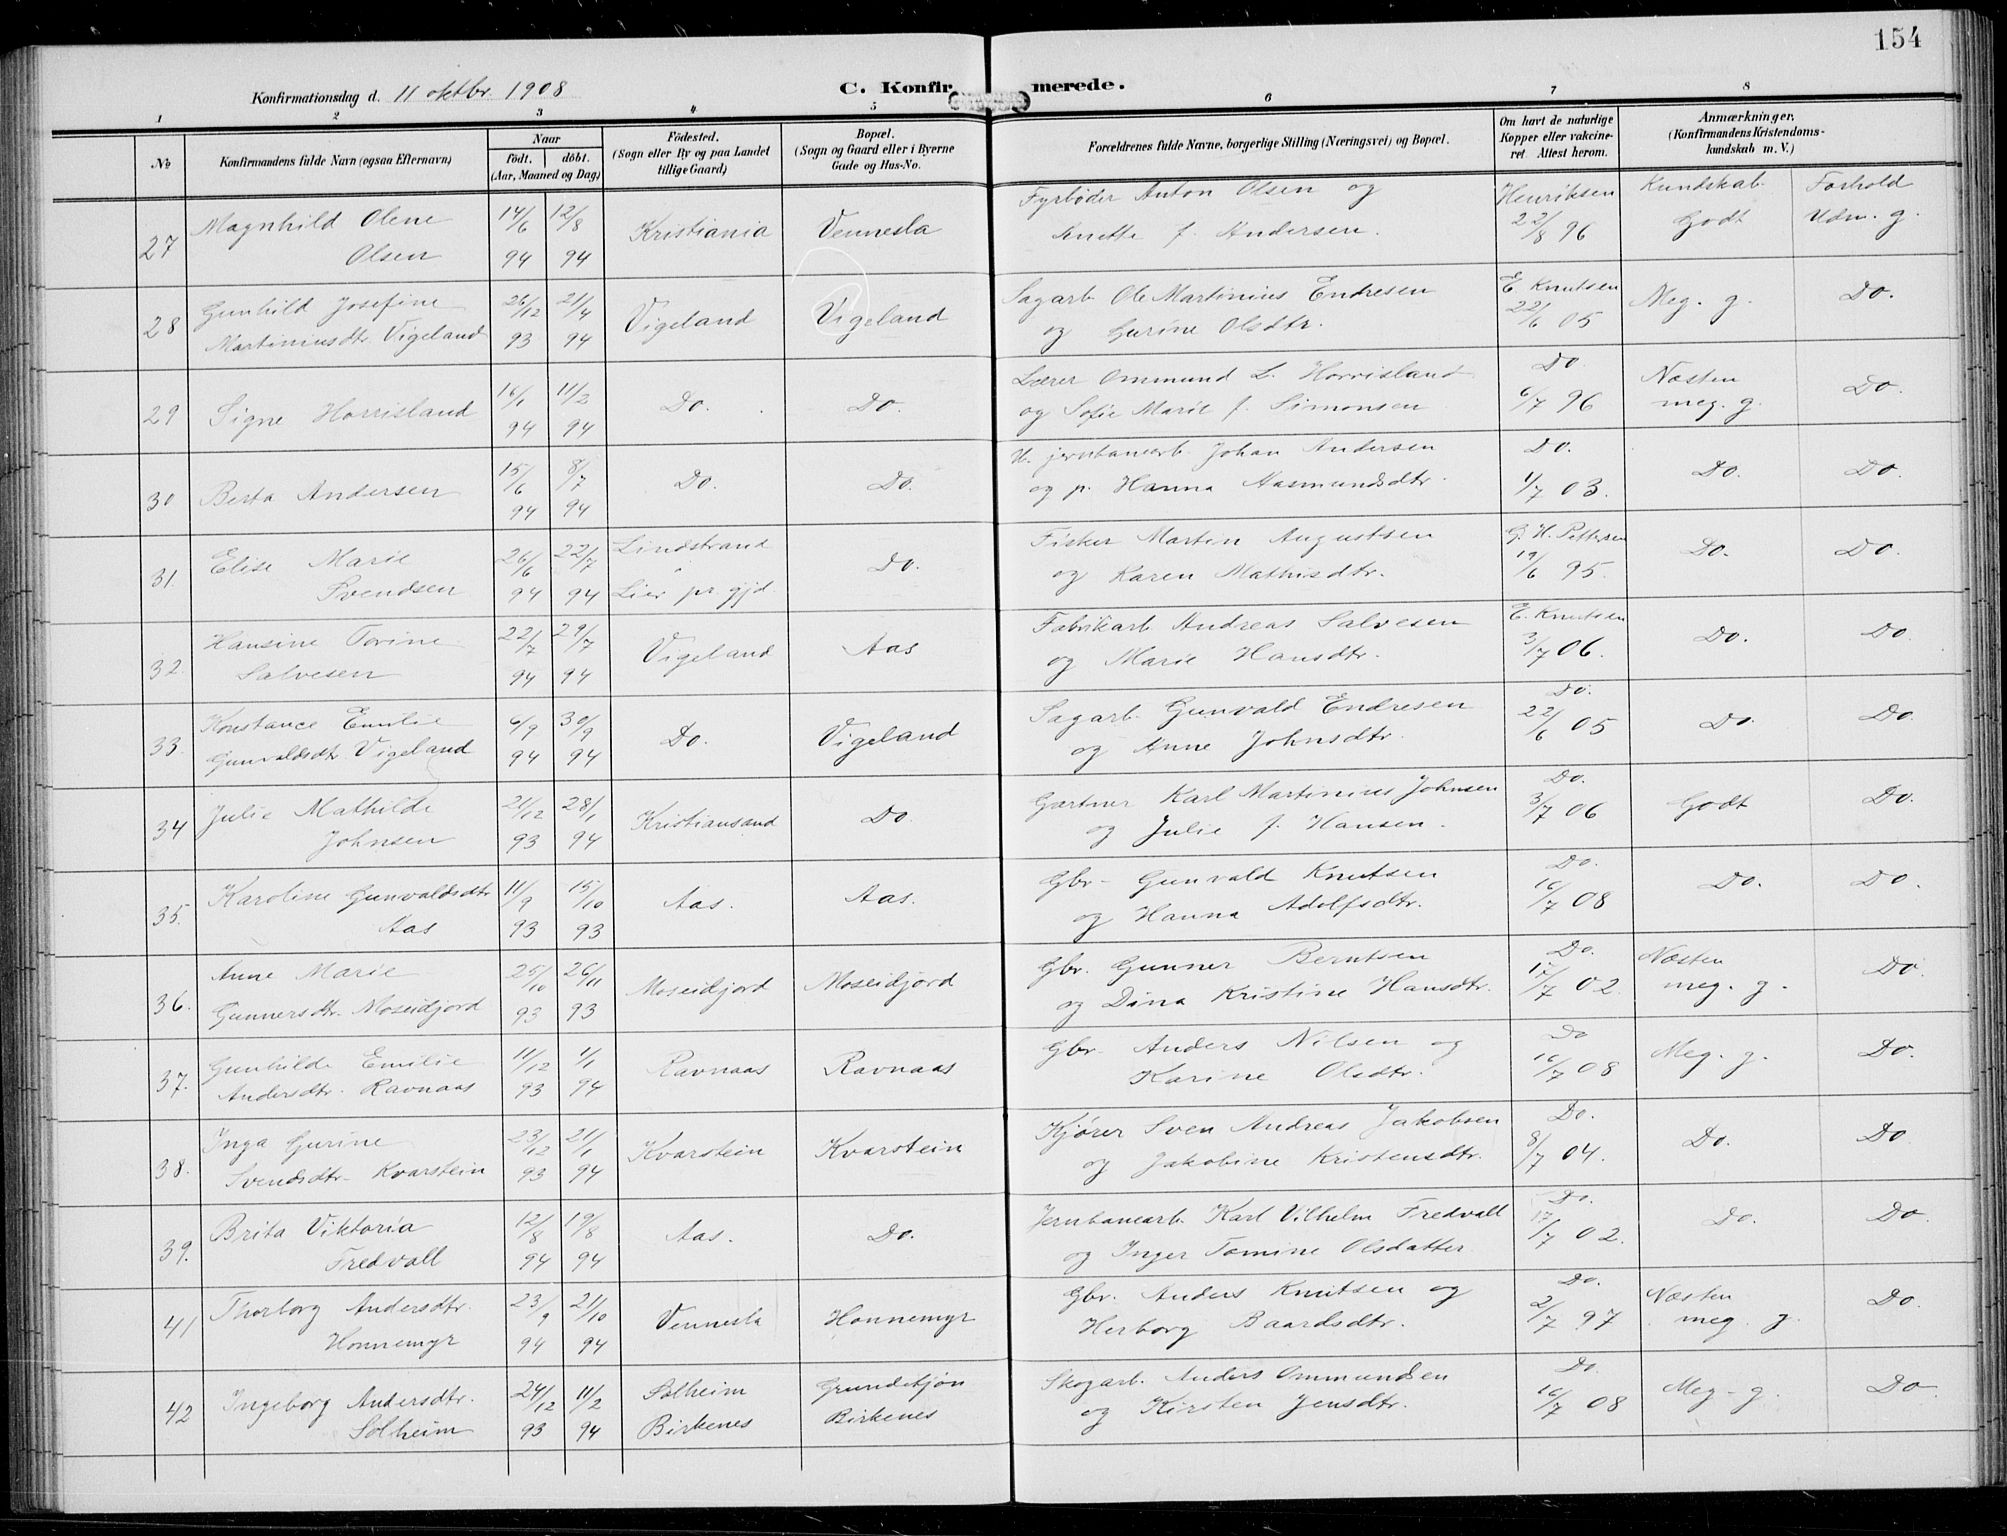 154
Konfirmationsdag d. 11 oktbr. 1908
C. Konfirmerede.
1 2 3 4 5 6 7 8
No
Konfirmandens fulde Navn (ogsaa Efternavn)
Naar
født. døbt.
(Aar, Maaned og Dag)
Fødested.
(Sogn eller By og paa Landet
tillige Gaard)
Bopæl.
(Sogn og Gaard eller i Byerne
Gade og Hus-No.
Forældrenes fulde Navne, borgerlige Stilling (Næringsvei) og Bopæl.
Om havt de naturlige
Kopper eller vakcine-
ret. Attest herom.
Anmærkninger.
(Konfirmandens Kristendoms-
kundskab m. V.)
Kundskab. Forhold
27 Magnhild Olene 14/6 12/8 Kristiania Vennesla Fyrbøder Anton Olsen og Henriksen Godt Udm. g.
Olsen 94 94 Anette f. Andersen. 22/8 96
28 Gunhild Josefine 26/12 21/4 Vigeland Vigeland Sagarb. Ole Martinius Endresen E Knutsen Meg. g. Do.
Martiniusdtr Vigeland 93 94 og Gurine Olsdtr. 22/6 05
29 Signe Horrisland 16/1 11/3 Do. Do. Lærer Ommund L. Horrisland Do Næsten Do.
94 94 og Sofie Marie f. Simonsen 6/7 96 meg. g.
30 Berta Andersen 15/6 8/7 Do. Do. jernbanearb. Johan Andersen Do. Do. Do
94 94 og p. Hanna Aasmundsdtr. 1/7 03.
31. Elise Marie 26/6 22/7 Lindstrand Do. Fisker Martin Augustsen G. H. Pettersen Do. Do.
Svendsen 94 94 Lier pr. gjd. og Karen Mathisdtr. 19/6 95.
32. Hansine Torine 22/7 29/7 Vigeland Aas Fabrikarb Andreas Salvesen E. Knutsen Do. Do.
Salvesen 94 94 og Marie Hansdtr. 3/7 06.
33. Konstance Emilie 6/9 30/9 Do. Vigeland Sagarb. Gunvald Endresen Do. Do Do.
Gunvaldsdtr Vigeland 94 94 og Anne Johnsdtr. 22/6 05
34 Julie Mathilde 21/12 28/1 Kristiansand Do. Gartner Karl Martinius Johnsen Do. Godt Do.
Johnsen 93 94 og Julie f. Hansen. 3/7 06
35. Karoline Gunvaldsdtr 11/9 15/10 Aas. Aas. Gbr. Gunvald Knutsen Do. Do. Do.
Aas 93 93 og Hanna Adolfsdtr. 16/7 08
36. Anne Marie 25/10 26/11 Moseidjord Moseidjord Gbr. Gunner Berntsen Do. Næsten Do.
Gunnersdtr. Moseidjord 93 93 og Dina Kristine Hansdtr. 17/7 02. meg. g.
37. Gunhilde Emilie 11/12 1/1 Ravnaas Ravnaas Gbr. Anders Nilsen og Do Meg. g. Do.
Andersdtr. Ravnaas 93 94 Karine Olsdtr. 16/7 08
38. Inga Gurine 23/12 21/1 Kvarstein Kvarstein Kjører Sven Andreas Jakobsen Do. Do. Do
Svendsdtr. Kvarstein 93 94 og Jakobine Kristensdtr. 8/7 04.
39. Brita Viktoria 12/8 19/8 Aas. Do. Jernbanearb. Karl Vilhelm Fredvall Do. Do. Do
Fredvall 94 94 og Inger Tomine Olsdatter. 17/7 02.
41 Thorborg Andersdtr. 23/9 21/10 Vennesla Honnemyr Gbr. Anders Knutsen og Do. Næsten Do.
Honnemyr 94 94 Herborg Baardsdtr. 2/7 97 meg. g.
42 Ingeborg Andersdtr. 24/12 11/2 Solheim Grundetjøn Skogarb. Anders Ommundsen Do Meg. g. Do.
Solheim 93 94 Birkenes Birkenes og Kirsten Jensdtr. 16/7 08